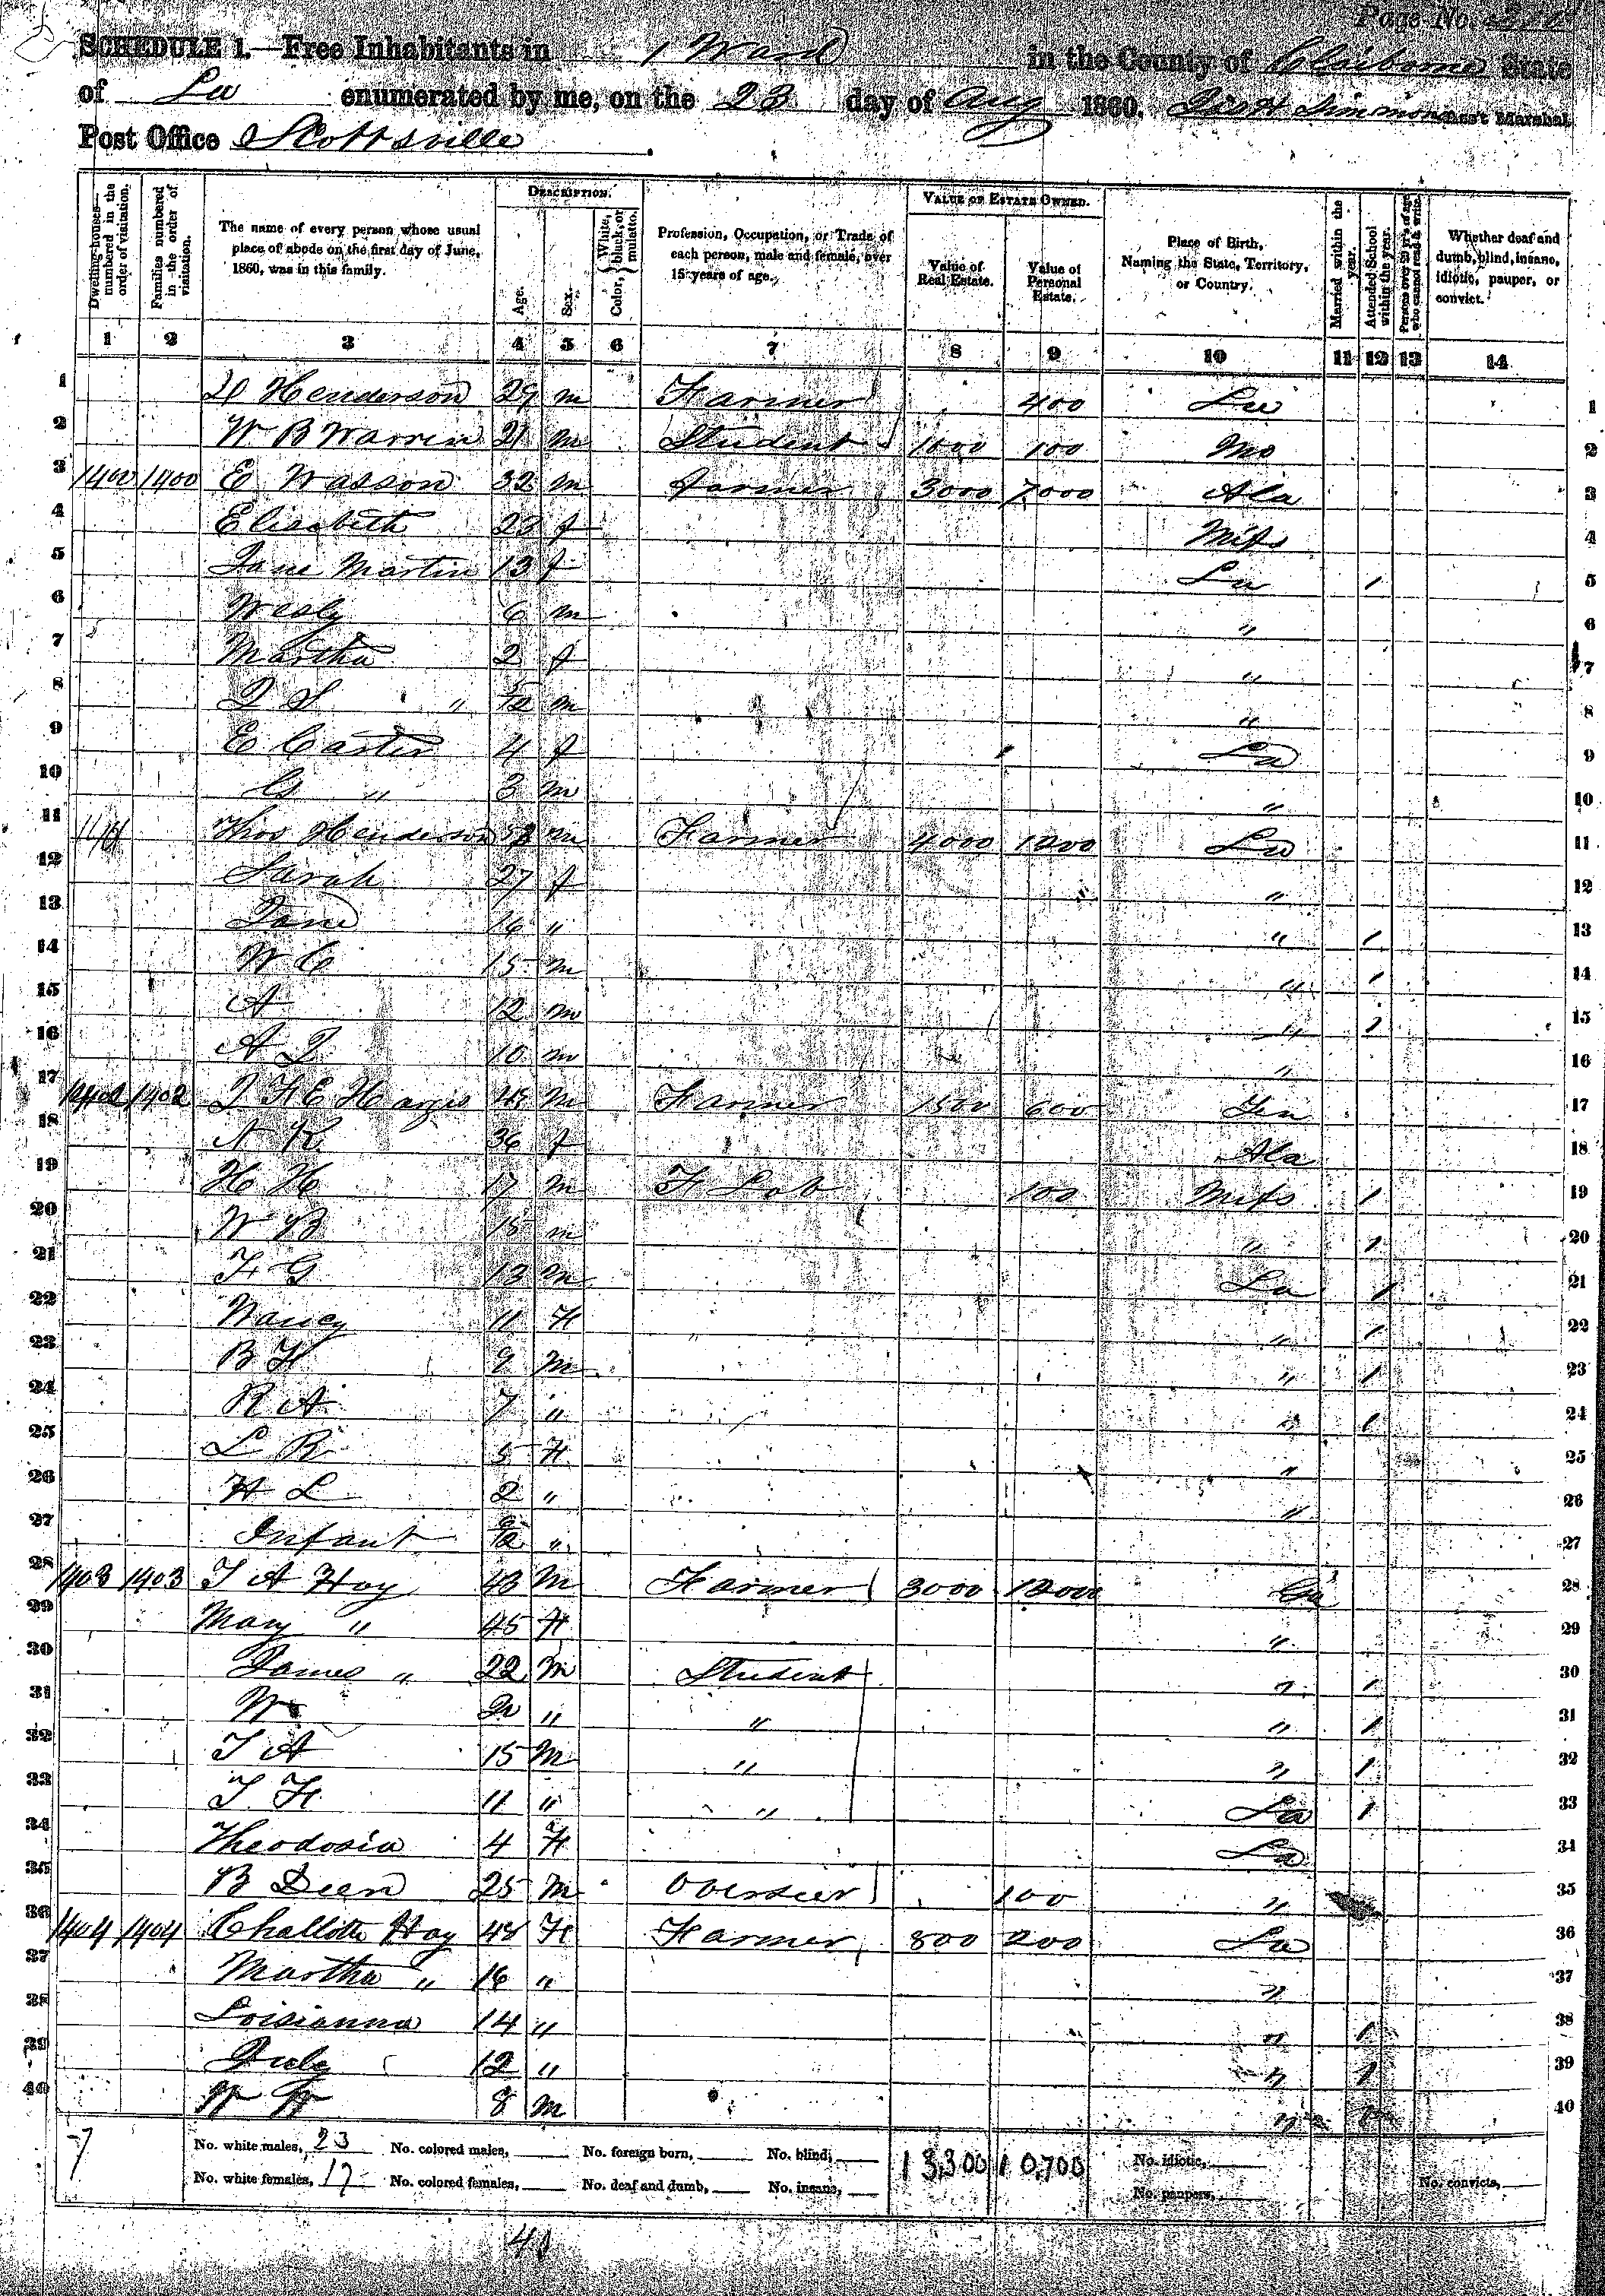 Page No.
SCHEDULE 1.—Free Inhabitants in 1 Ward in the County of Claiborne State
of La enumerated by me, on the 23 day of Aug 1860. Simmons Ass't Marshal
Post Office Scottsville
Dwelling-houses— numbered in the order of visitation.
Families numbered in the order of visitation.
The name of every person whose usual place of abode on the first day of June, 1860, was in this family.
DESCRIPTION.
Age.
Sex.
Color, { White, black, or mulatto.
Profession, Occupation, or Trade of each person, male and female, over 15 years of age.
VALUE OF ESTATE OWNED.
Value of Real Estate.
Value of Personal Estate.
Place of Birth, Naming the State, Territory, or Country.
Married within the year.
Attended School within the year.
Persons over 20 y'rs of age who cannot read & write.
Whether deaf and dumb, blind, insane, idiotic, pauper, or convict.
1 2 3 4 5 6 7 8 9 10 11 12 13 14
1 Henderson 29 m Farmer 400 La 1
2 W B Warren 21 m Student 1000 100 Mo 2
3 1400 1400 E Wasson 32 m farmer 3000 7000 Ala 3
4 Elisabeth 23 f Miss 4
5 Jane Martin 13 f La 1 5
6 Wesly 6 m " 6
7 Martha 2 f " 7
8 J S " /12 m " 8
9 E Carter 4 f La 9
10 G " 3 m " 10
11 1401 Thos Henderson m Farmer 4000 1200 La 11
12 Sarah 27 f " 12
13 Jane 16 " " 1 13
14 W C 15 m " 1 14
15 A 12 m " 1 15
16 A J 10 m " 16
17 1402 1402 J F E Hargis 45 M Farmer 1500 600 Ten 17
18 N K 36 f Ala 18
19 H H 17 m F Lab 100 Miss 1 19
20 W B 15 m " 1 20
21 F G 13 m La 1 21
22 Nancy 11 F " 1 22
23 B F 9 m " 1 23
24 R A 7 " " 1 24
25 L B 5 F " 25
26 H L 2 " " 26
27 Infant /12 " 27
28 1403 1403 T A Hay 43 M Farmer 3000 1200 Ga 28
29 Mary " 45 F " 29
30 James " 22 M Student " 1 30
31 W " " " 1 31
32 T A 15 M " " 1 32
33 T F 11 " " La 1 33
34 Theodosia 4 F La 34
35 B Deen 25 m Overseer 100 " 35
36 1404 1404 Challotte Hay 48 F Farmer 800 200 La 36
37 Martha " 16 " " 37
38 Loisianna 14 " " 1 38
39 July 12 " " 1 39
40 8 m " 40
7 No. white males, 23 No. colored males, No. foreign born, No. blind, 13,300 10,700 No. idiotic,
No. white females, 17 No. colored females, No. deaf and dumb, No. insane, No. paupers, No. convicts,